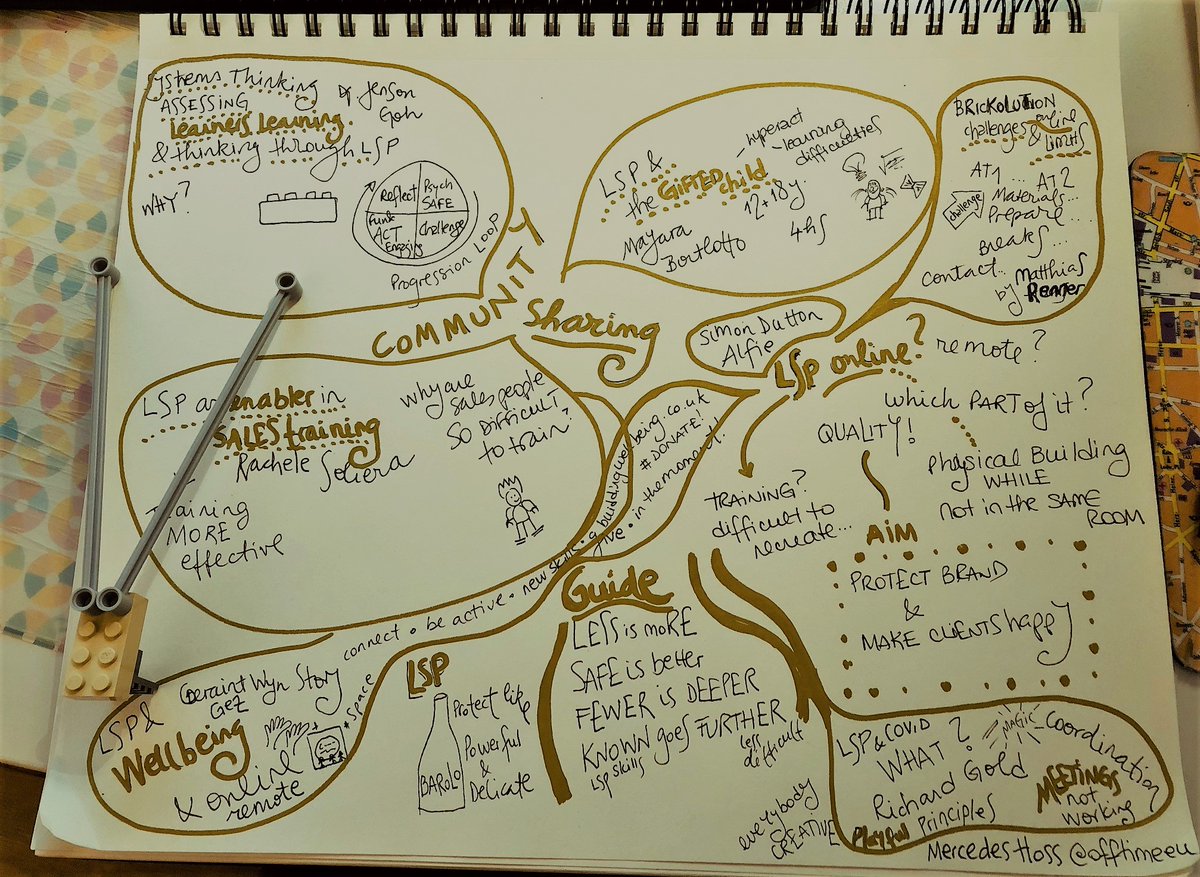 Systems Thinking
ASSESSING
Learners Learning
& thinking through LSP
by Jenson
Goh
WHY?
Reflect
Psych
SAFE
Challenge
ACT
Progression Loop
COMMUNITY
Sharing
LSP &
the GIFTED child
- hyperact
- learning
difficulties
12 + 18y
4hs
Mayara
Bortlotto
BRICKOLUTION
challenges online
& limits
AT1 ...
AT2
challenge
Materials...
Prepare...
Breaks...
contact...
by Matthias
Renner
Simon Dutton
Alfie
LSP online?
remote?
which PART of it?
QUALITY!
Physical Building
WHILE
not in the SAME
ROOM
TRAINING?
difficult to
recreate...
AIM
PROTECT BRAND
&
MAKE CLIENTS happy
LSP as enabler in
SALES training
Rachele Soliera
why are
sales people
SO DIFFICULT
to train?
Training
MORE
effective
connect • be active • new skills • give • in the moment
buildingwellbeing.co.uk
#DONATE!
LSP &
Wellbeing
& online
remote
Geraint Wyn Story
GEZ
+ space
LSP
BAROLO
Protect life
Powerful
&
Delicate
Guide
LESS is moRE
SAFE is better
FEWER is DEEPER
KNOWN goes FURTHER
LSP skills
less
difficult
everybody
CREATIVE
LSP & COVID
WHAT?
Richard Gold
Playful Principles
MAGIC
Coordination
MEETINGS
not
working
Mercedes Hoss @offtimeeu